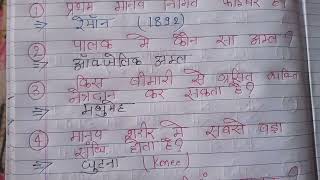 ① प्रथम मानव निर्मित फाइबर है?
⇒ रेयॉन (1892)
② पालक मे कौन सा अम्ल?
⇒ ऑक्जेलिक अम्ल
③ किस बीमारी से ग्रसित व्यक्ति
नेत्रदान कर सकता है?
⇒ मधुमेह
④ मानव शरीर मे सबसे बड़ा
संधि होता है?
⇒ घुटना (Knee)